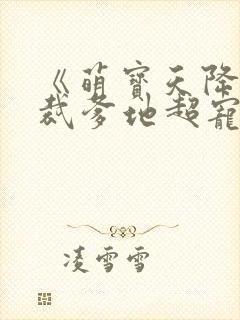 《萌寶天降
裁爹地超寵
凌雪雪